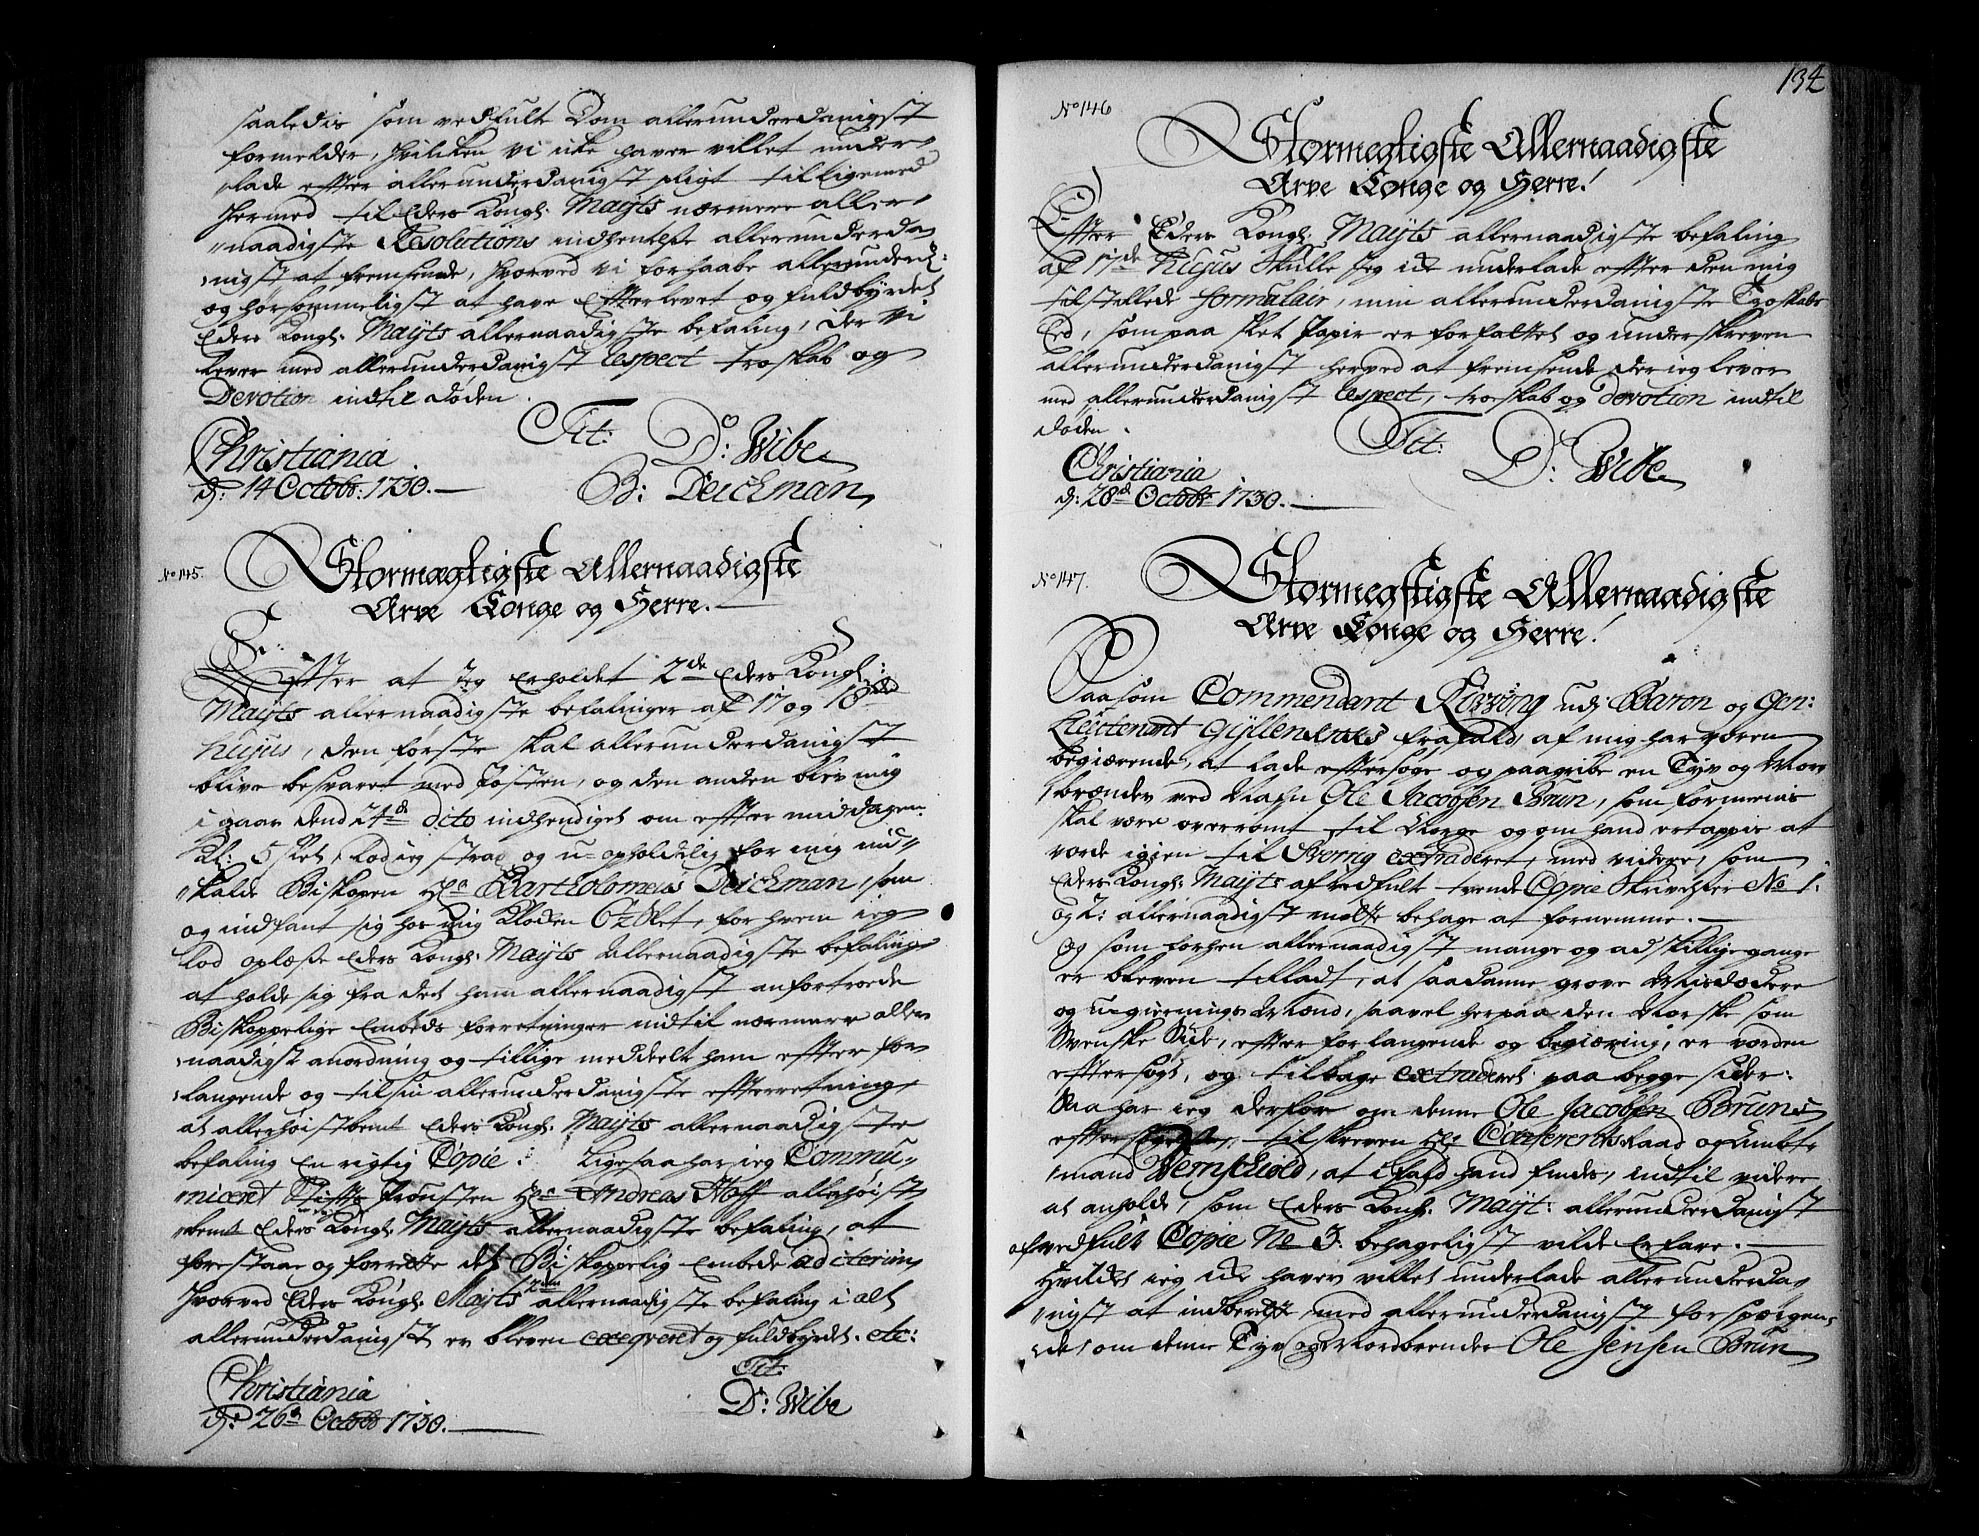 saaledis som vedfulte Dom allerunderdanigst
formelder, hvilcken vi icke haver villet under-
lade effter allerunderdanigst pligt tilligemed
hermed til Eders Kongl: Mayts nærmere aller-
naadigste Resolutions indhentelse allerunderda-
nigst at fremsende, hvorved vi forhaabe allerunderd:
og hørsommeligst at have Efterlevet og fuldbyrdet
Eders Kongl: Mayts allernaadigste befaling, Der vi
lever med allerunderdanigst respect troskab og
Devotion indtil døden.
Tit: D: Wibe
Christiania
d: 14 Octobr: 1730.
B: Deichman
No 145.
Stormægtigste Allernaadigste
Arve Konge og Herre.
Efter at Jeg Erholdet 2de Eders Kongl:
Mayts allernaadigste befalinger af 17 og 18de
hujus, den første skal allerunderdanigst
blive besvaret med Posten, og den anden blev mig
i gaar dend 24de dito indhendiget om effter middagen
Kl: 5 slet, lod ieg strax og u-opholdelig for mig ind-
kalde Biskopen Hr Bartholomæus Deichman, som
og indfant sig hos mig Klocken 6½ slet, for hvem ieg
lod oplæse Eders Kongl: Mayts Allernaadigste befaling
at holde sig fra det ham allernaadigst anfortroede
Biskoppelige Embeds forretninger indtil nærmere aller-
naadigst anordning og tillige meddeelt ham effter for-
langende og til sin allerunderdanigste effterretning
at allerhøistbemt Eders Kongl: Mayts allernaadigste
befaling En rigtig Copie: Ligesaa har ieg Commu-
niceret Stifts Prousten Hr Andreas Hoff allerhøist-
bemt Eders Kongl: Mayts allernaadigste befaling, at
forestaae og forrette det Biskoppelig Embede ad interim
hvorved Eders Kongl: Mayts allernaadigste befaling i alt
allerunderdanigst er bleven exeqveret og fuldbyrdet. etc:
Christiania
d: 26de Octobr 1730.
Tit:
D: Wibe
134
No 146
Stormegtigste Allernaadigste
Arve Konge og Herre!
Effter Eders Kongl: Mayts allernaadigste befaling
af 17de hujus skulle Jeg icke underlade effter den mig
tilstillede formulair, min allerunderdanigste Troskabs
Eed, som paa slet Papir er forfattet og underskreven
allerunderdanigst herved at fremsende, der ieg lever
med allerunderdanigst respect, troskab og devotion indtil
døden.
Tit:
D: Wibe
Christiania
d: 28de Octobr 1730.
No 147.
Stormegtigste Allernaadigste
Arve Konge og Herre!
Saasom Commendant Rossing udj Baron og Gen:
Lieutenant Gyllen fravald af mig har væren
begiærende, at lade eftersøge og paagribe en Tyv og Mord-
brænder ved Nafn Ole Jacobsen Brun, som formenis
skal være overrømt til Norge og om hand ertappis at
vorde igien til Sverig extraderet, med videre, som
Eders Kongl: Mayts af vedfult tvende Copie Skrivelser No 1:
og 2: allernaadigst motte behage at fornemme.
Og som forhen allernaadigst mange og adskillige gange
er bleven tilladt, at saadanne grove Misdædere
og ugiernings Mænd, saavel her paa den Norske som
Svenske Side, effter forlangende og begiæring, er vorden
effter søgt, og tilbage extraderet paa begge sider:
Saa har ieg derfore om denne Ole Jacobsen Bruns
tilskreven Hr Conferentsraad og Ambt-
mand Vernschiold, at i fald hand findes, indtil videre
at anholde, som Eders Kongl: Mayt: allerunderdanigst
af vedfult Copie No 3: behageligst vilde Erfare.
Hvilcket ieg icke haver villet underlade allerunderda-
nigst at indberette, med allerunderdanigst forspørgen-
de om denne Tyv og Mordbrender Ole Jensen Brun